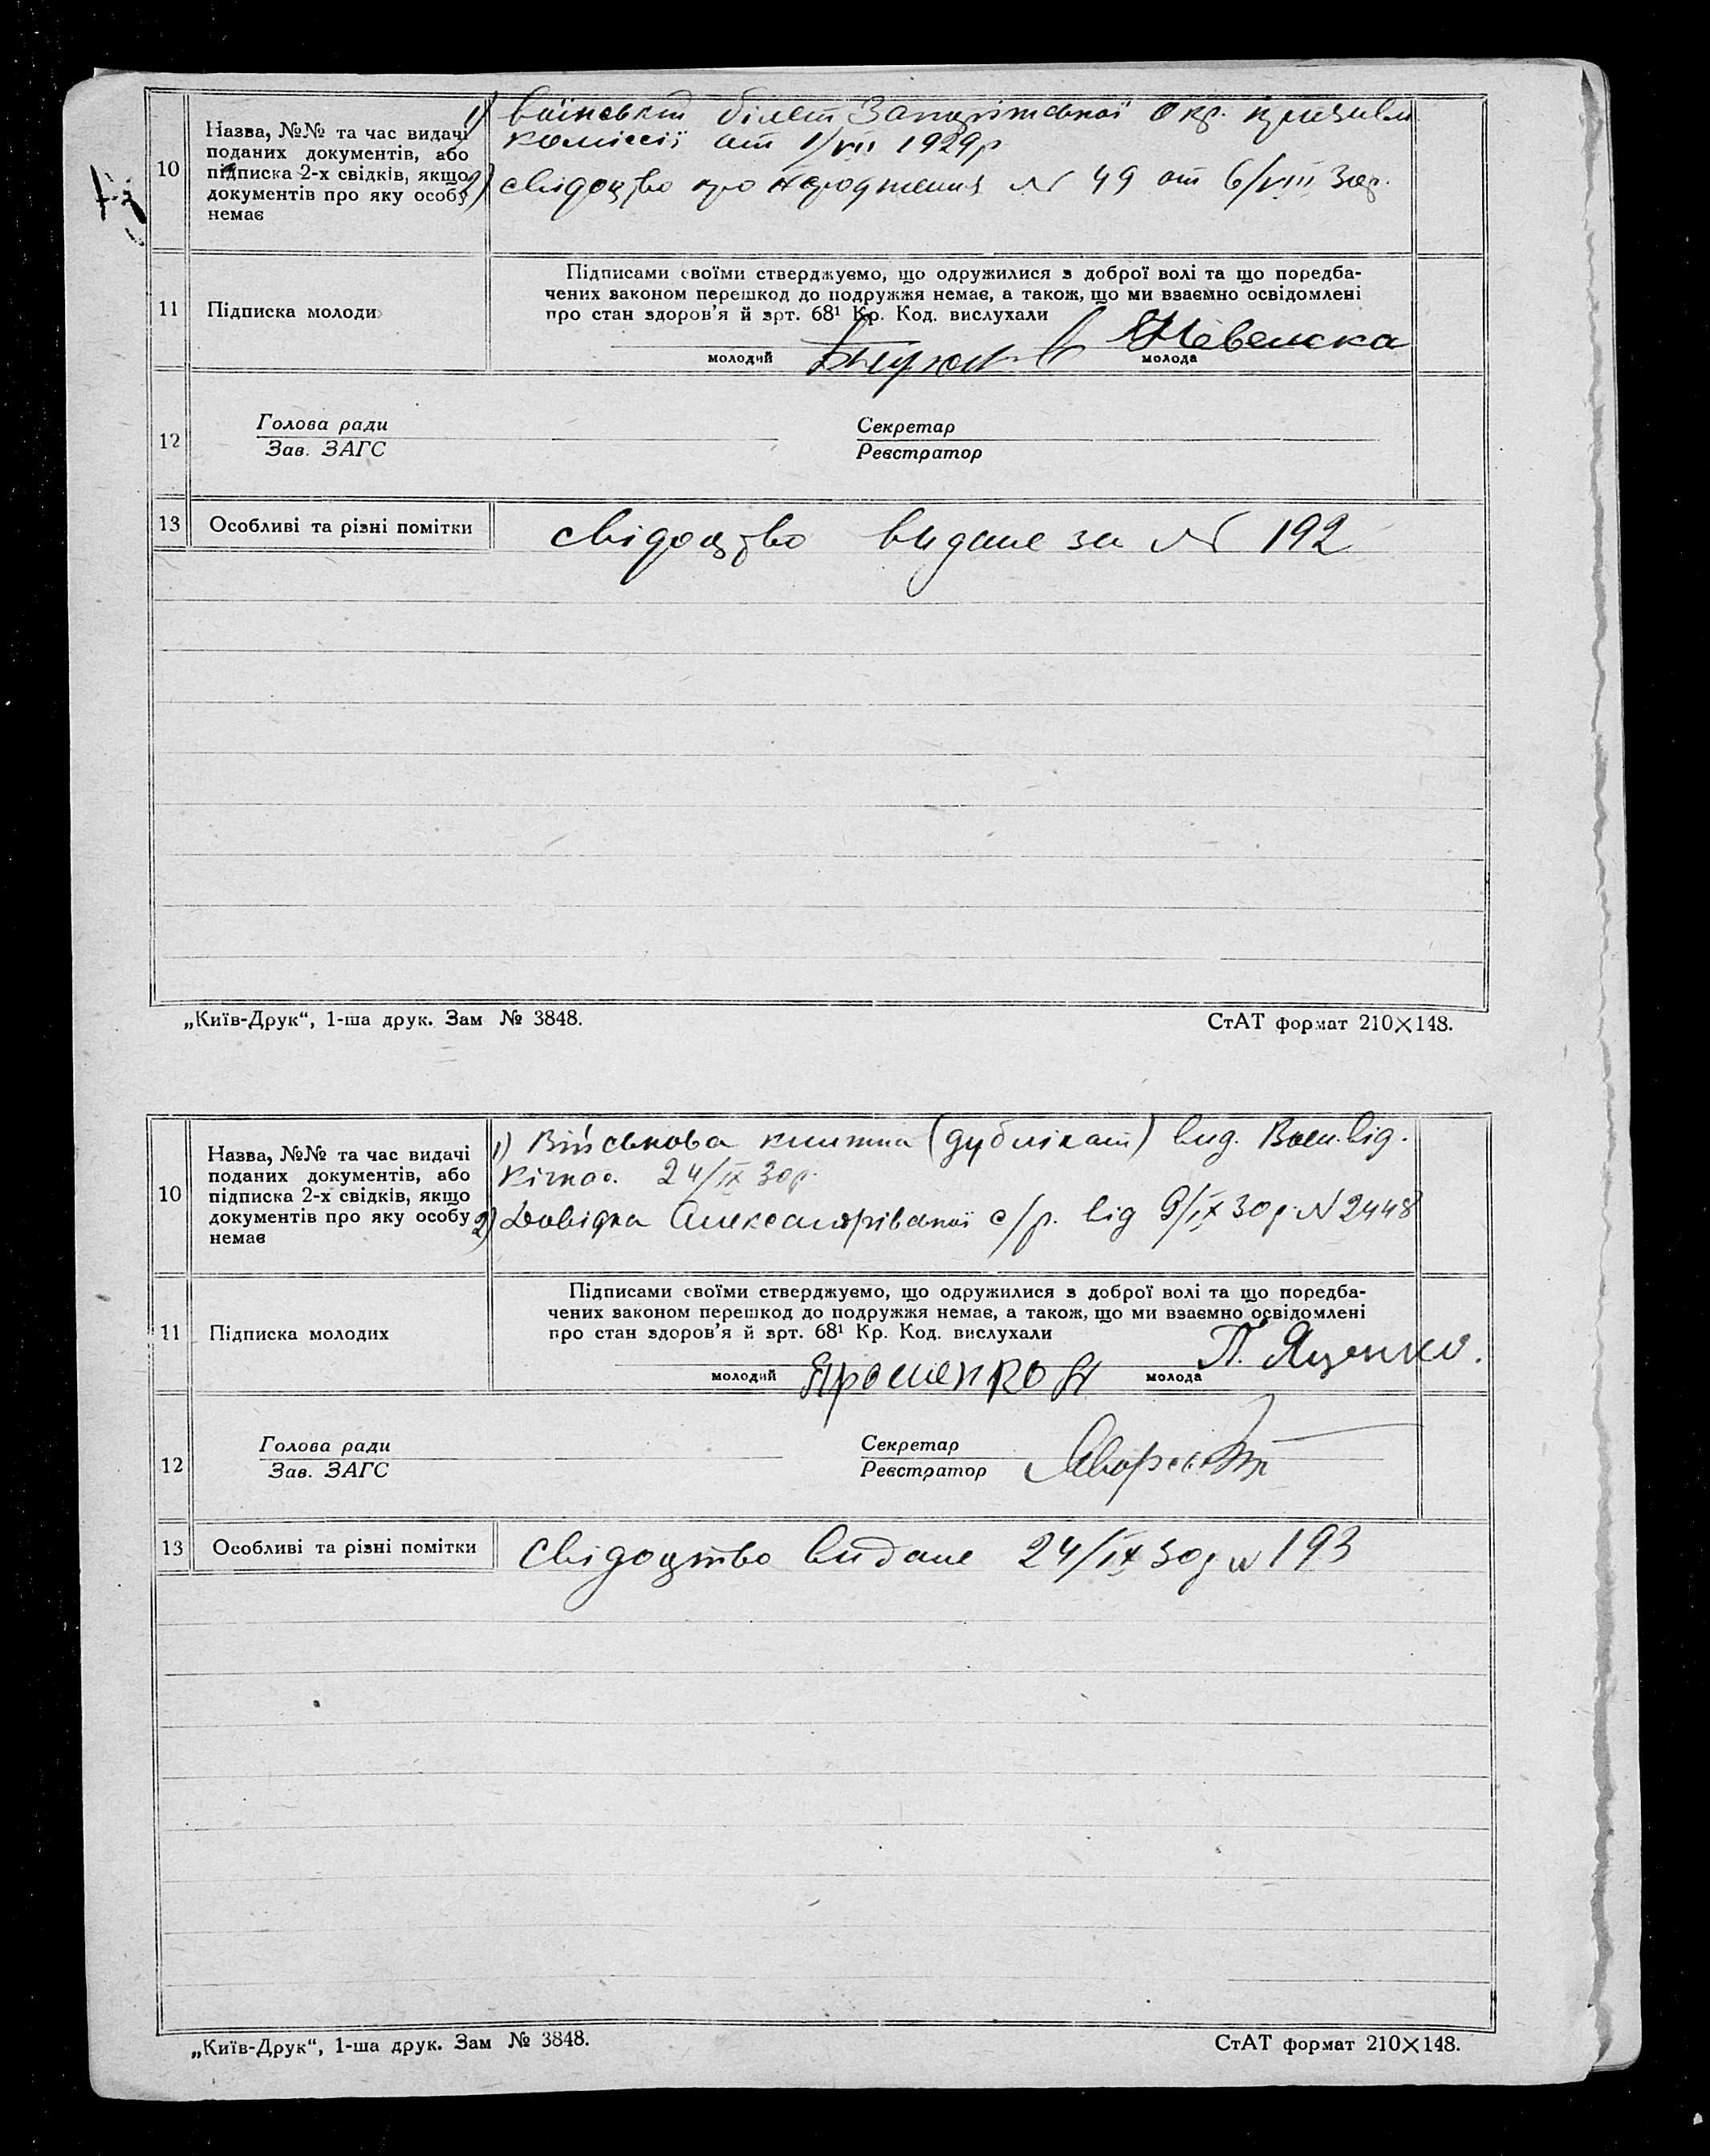 10
Назва, №№ та час видачі
поданих документів, або
підписка 2-х свідків, якщо
документів про яку особу
немає
1) воїнський білет Запоріжської Окр. призивн
комісії от 1/VII 1929р
2) свідоцтво про народження № 49 от 6/VIII 30р.
11
Підписка молоди
Підписами своїми стверджуємо, що одружилися з доброї волі та що поредба-
чених законом перешкод до подружжя немає, а також, що ми взаємно освідомлені
про стан здоров'я й арт. 68¹ Кр. Код. вислухали
молодий
молода
12
Голова ради
Зав. ЗАГС
Секретар
Реєстратор
13
Особливі та різні помітки
свідоцтво видане за № 192
„Київ-Друк“, 1-ша друк. Зам № 3848.
СтАТ формат 210×148.
10
Назва, №№ та час видачі
поданих документів, або
підписка 2-х свідків, якщо
документів про яку особу
немає
1) Військова книжка (дублікат) вид. Воен. від.
24/IX 30р.
2) Довідка Олександрівської с/р. від 9/IX 30р. N 2448
11
Підписка молодих
Підписами своїми стверджуємо, що одружилися з доброї волі та що поредба-
чених законом перешкод до подружжя немає, а також, що ми взаємно освідомлені
про стан здоров'я й арт. 68¹ Кр. Код. вислухали
молодий Ярошенко
молода П. Яценко.
12
Голова ради
Зав. ЗАГС
Секретар
Реєстратор
13
Особливі та різні помітки
Свідоцтво видане 24/IX 30р N 193
„Київ-Друк“, 1-ша друк. Зам № 3848.
СтАТ формат 210×148.